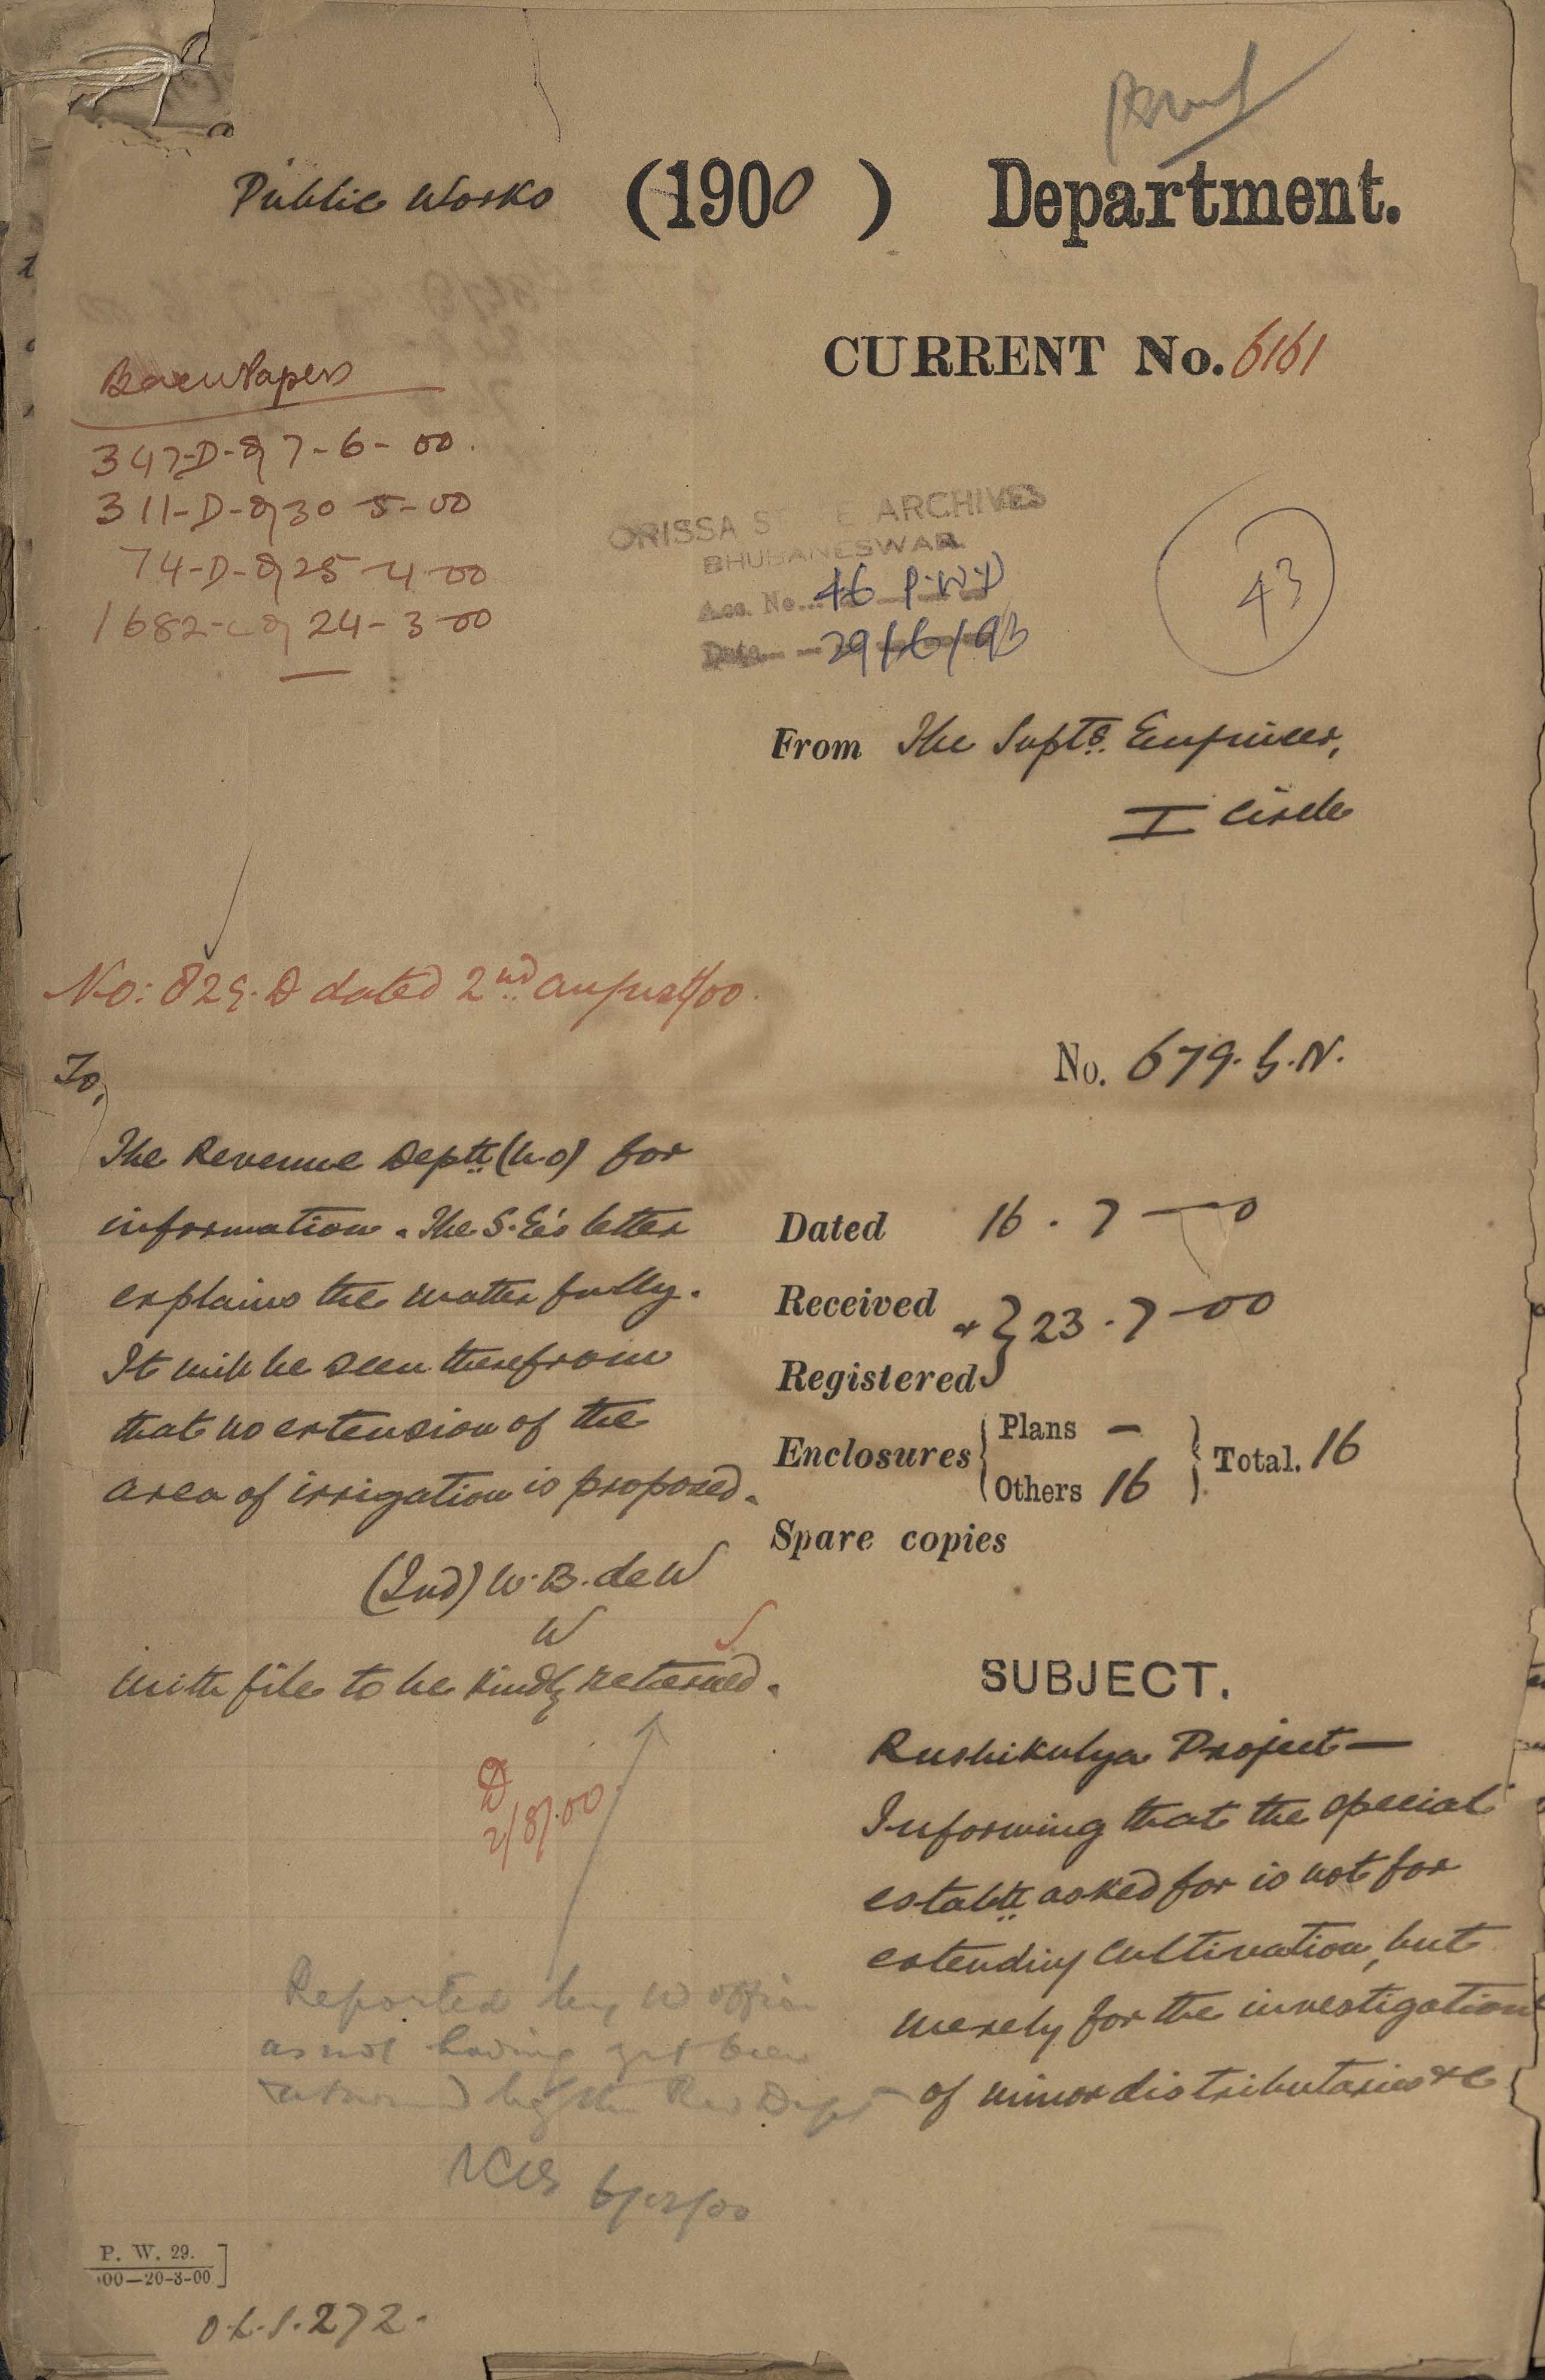 Public Works (1900) Department.
CURRENT No. 6161
Papers
347-D-of 7-6-00.
311-D-of 30-5-00
74-D-of 25-4-00
1682-C of 24-3-00
ORISSA STATE ARCHIVES
BHUBANESWAR
Acc. No... 46 P.W.D
Date 29/6/93
43
From The Suptg. Engineer,
I Circle
No: 829.D dated 2nd august/00.
No. 679.G.N.
To,
The Revenue Deptt. for
information. The S.E's letter
explains the matter fully.
It will be seen therefrom
that no extension of the
area of irrigation is proposed.
(Ind) W.B. de W
W
with file to be kindly returned.
D
2/8/00.
Dated 16.7-00
Received & } 23.7-00
Registered
Enclosures { Plans — } Total. 16
Others 16
Spare copies
SUBJECT.
Rushikulya Project—
Informing that the special
establt. asked for is not for
extending cultivation, but
merely for the investigation
of minor distributaries &c
Reported by W office
as not having yet been
by the Rev Dept
6/12/00
P. W. 29.
00—20-3-00
O.L.S. 272.